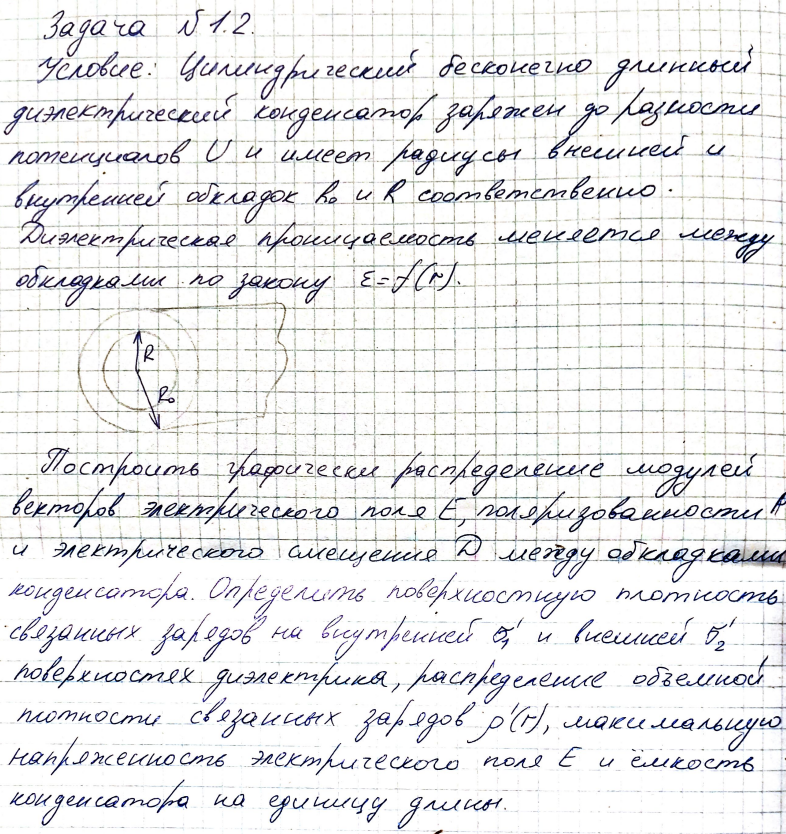 Задача №1.2.
Условие: Цилиндрический бесконечно длинный
диэлектрический конденсатор заряжен до разности
потенциалов U и имеет радиусы внешней и
внутренней обкладок R₀ и R соответственно.
Диэлектрическая проницаемость меняется между
обкладками по закону ε=f(r).
R
R₀
Построить графически распределение модулей
векторов электрического поля E, поляризованности P
и электрического смещения D между обкладками
конденсатора. Определить поверхностную плотность
связанных зарядов на внутренней σ₁' и внешней σ₂'
поверхностях диэлектрика, распределение объемной
плотности связанных зарядов ρ'(r), максимальную
напряженность электрического поля E и ёмкость
конденсатора на единицу длины.